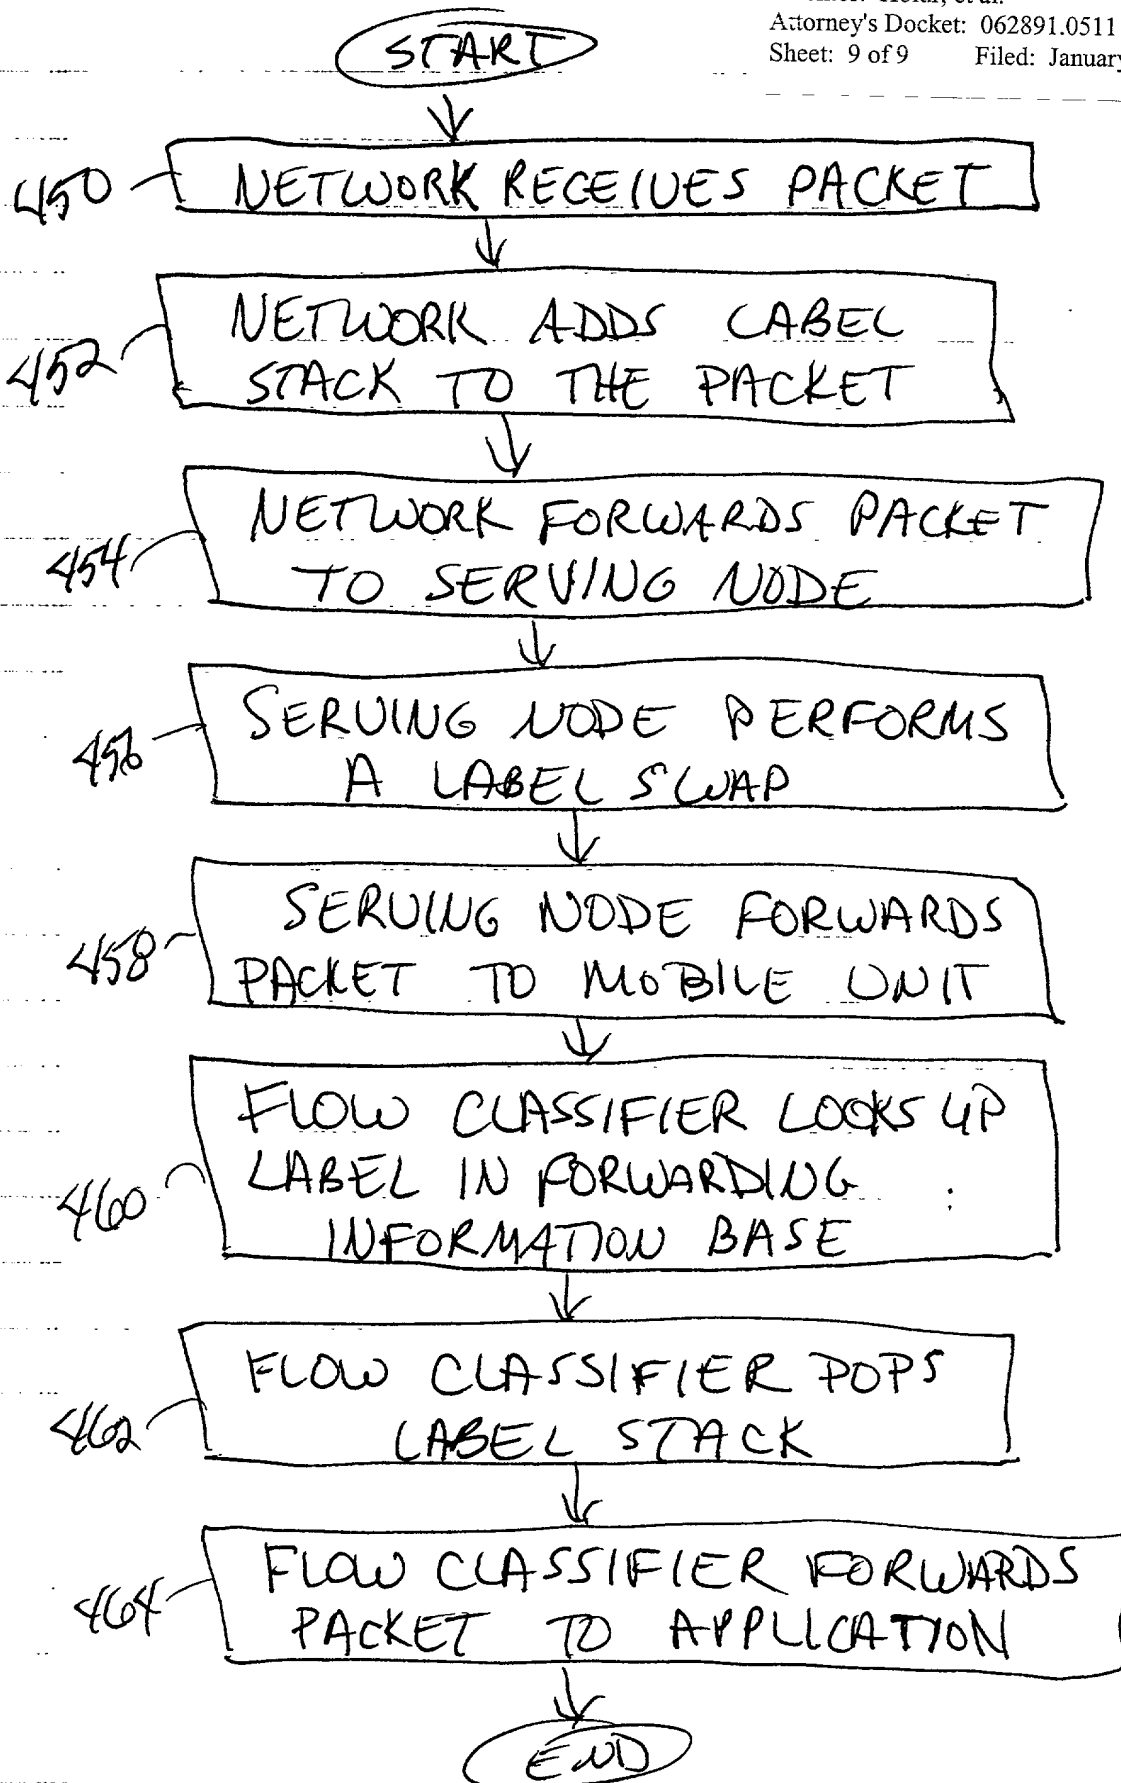 et al.
Attorney's Docket: 062891.0511
Sheet: 9 of 9 Filed: January
START
450
NETWORK RECEIVES PACKET
452
NETWORK ADDS LABEL
STACK TO THE PACKET
454
NETWORK FORWARDS PACKET
TO SERVING NODE
456
SERVING NODE PERFORMS
A LABEL SWAP
458
SERVING NODE FORWARDS
PACKET TO MOBILE UNIT
460
FLOW CLASSIFIER LOOKS UP
LABEL IN FORWARDING
INFORMATION BASE
462
FLOW CLASSIFIER POPS
LABEL STACK
464
FLOW CLASSIFIER FORWARDS
PACKET TO APPLICATION
END